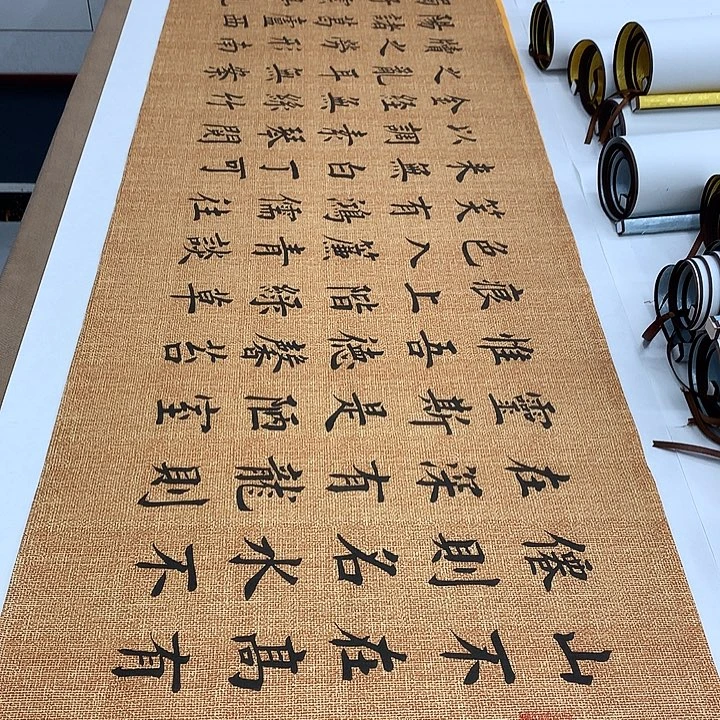 山不在高有
僊則名水不
在深有龍則
靈斯是陋室
惟吾德馨苔
痕上階綠草
色入簾青談
笑有鴻儒往
來無白丁可
以調素琴閱
金經無絲竹
之亂耳無案
牘之勞形南
陽諸葛廬西